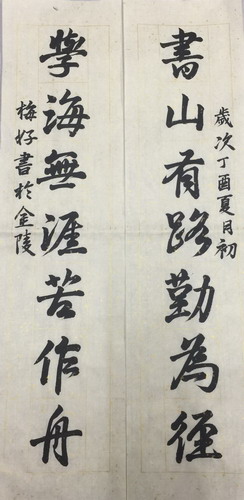 書山有路勤為徑
歲次丁酉夏月初
學海無涯苦作舟
梅好書於金陵